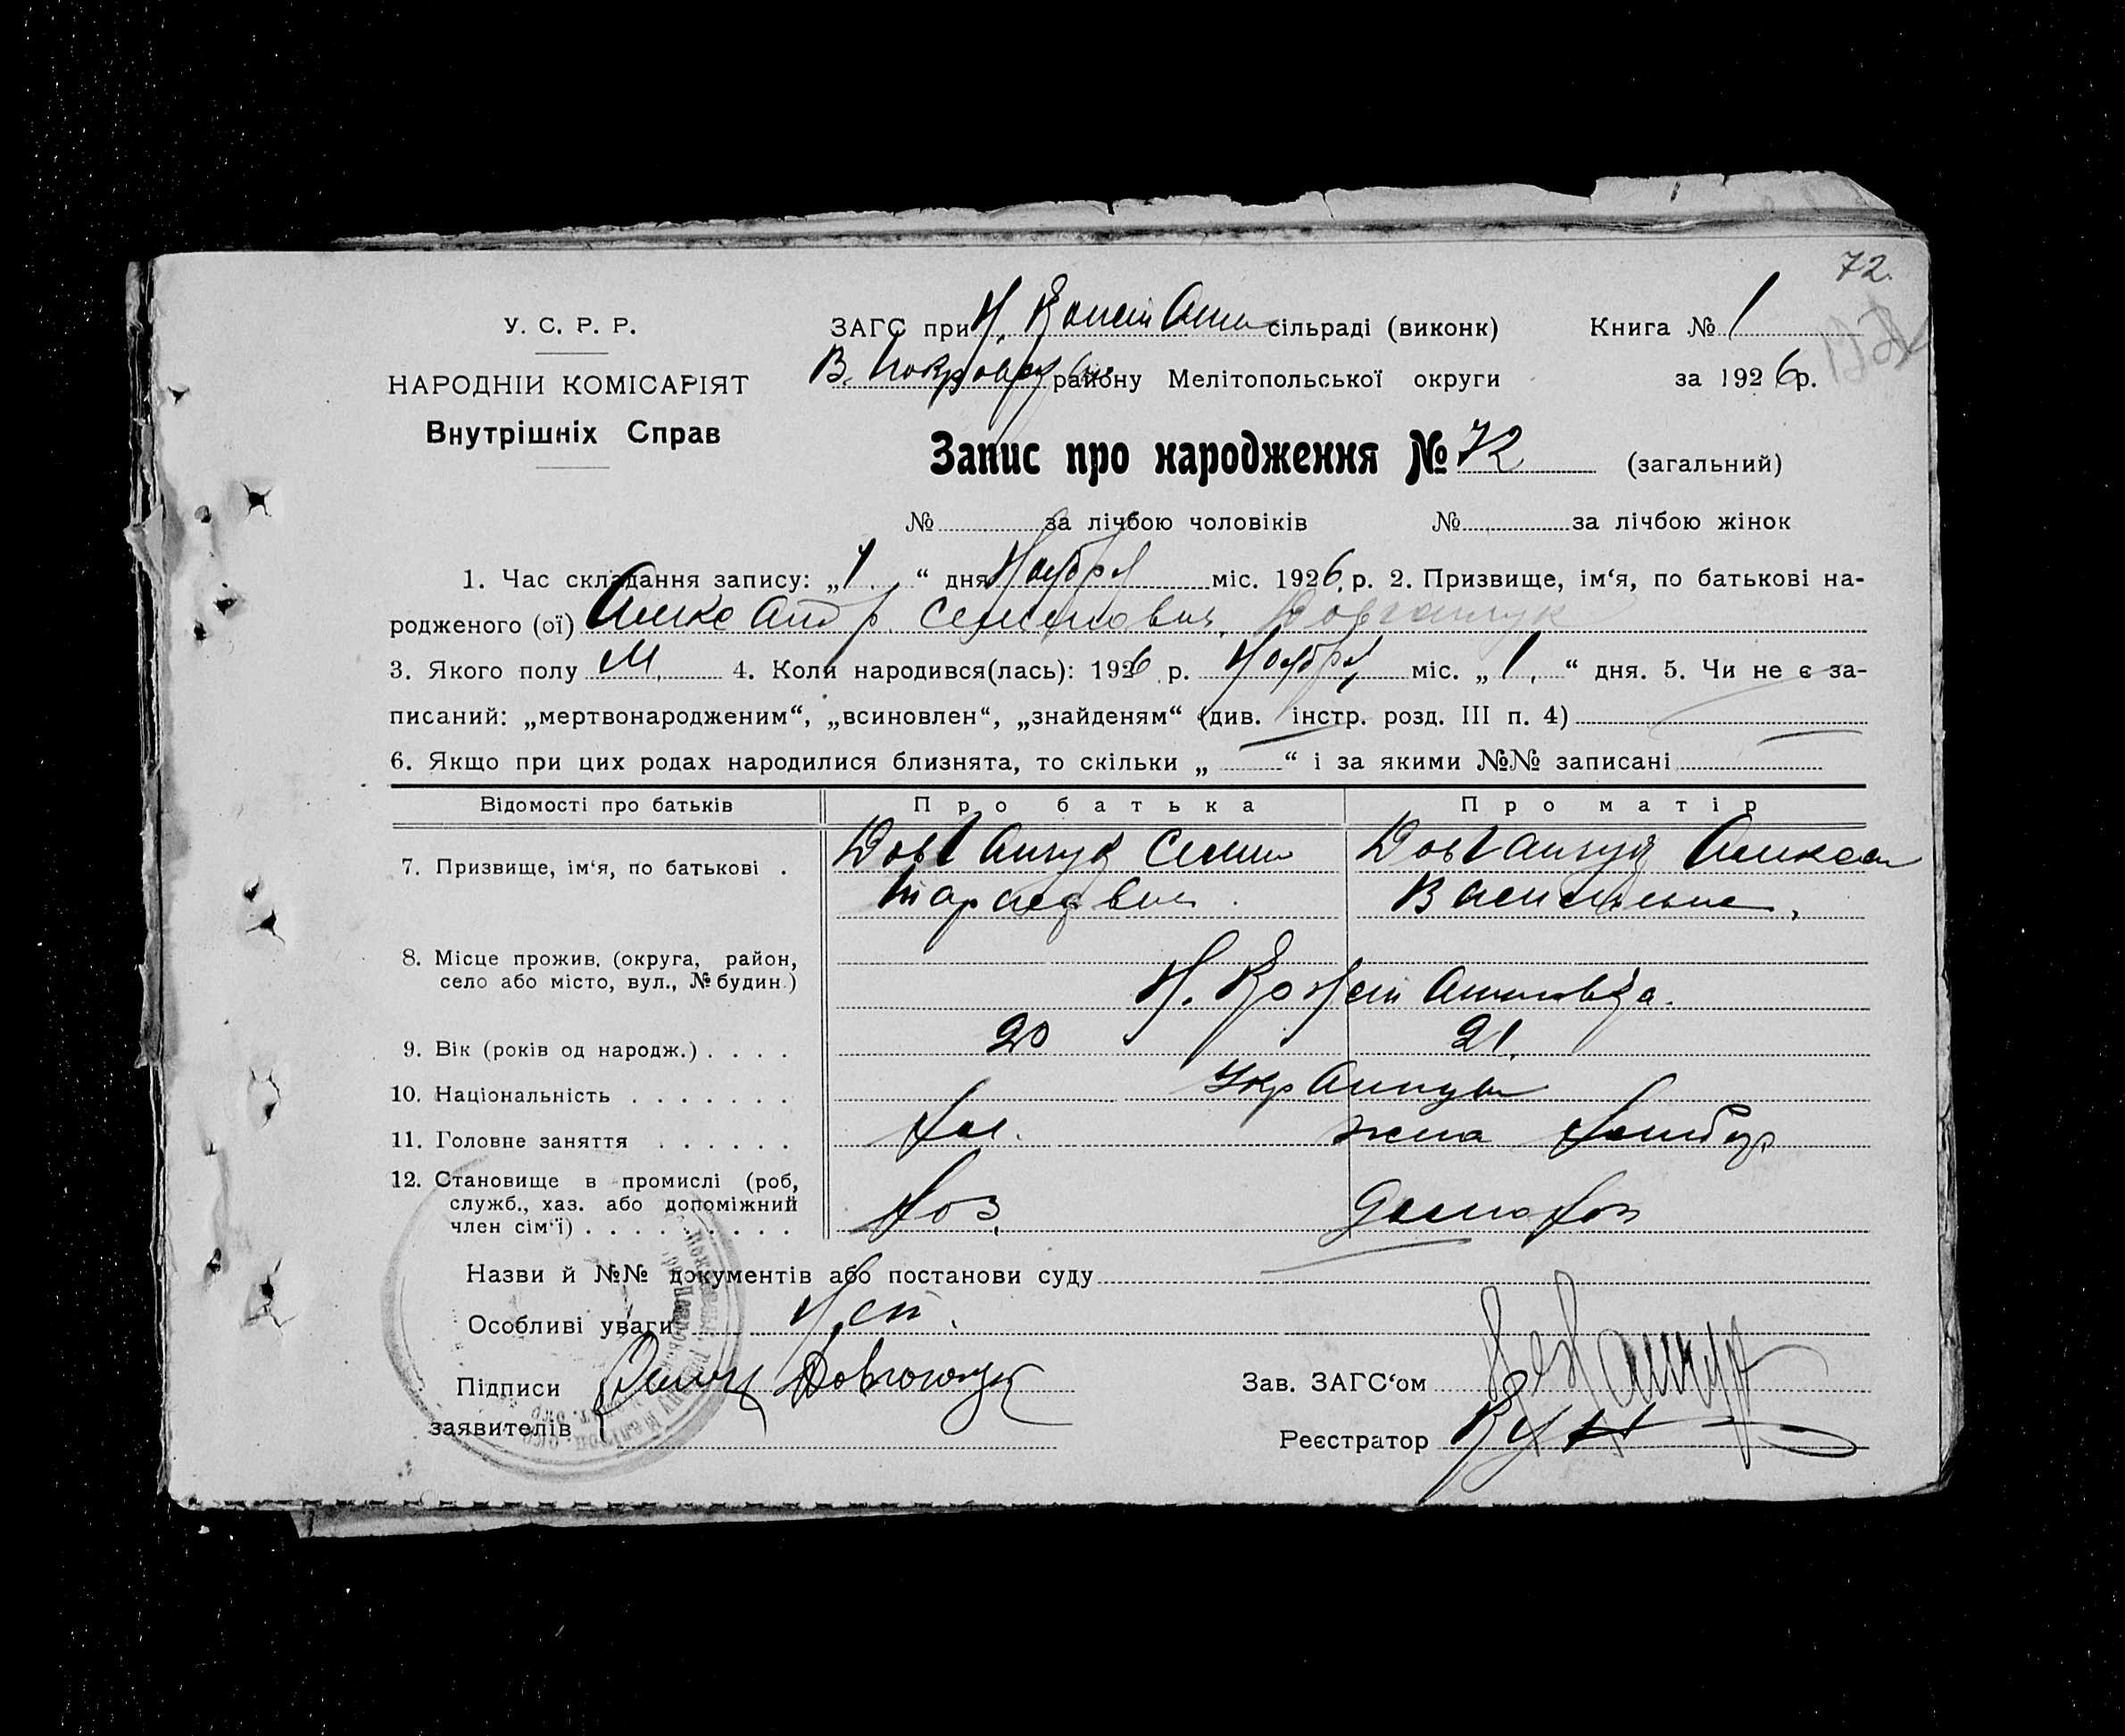 72.
У. С. Р. Р.
НАРОДНІЙ КОМІСАРІЯТ
Внутрішніх Справ
ЗАГС при Н. Конст сільраді (виконк)
Книга № 1
В. Покровск району Мелітопольської округи
за 1926 р.
Запис про народження № 72 (загальний)
№ за лічбою чоловіків № за лічбою жінок
1. Час складання запису: „1“ дня Ноября міс. 1926 р. 2. Призвище, ім‘я, по батькові на-
родженого (ої) Семенович Довганчук
3. Якого полу М. 4. Коли народився(лась): 1926 р. Ноября міс. „1“ дня. 5. Чи не є за-
писаний: „мертвонародженим“, „всиновлен“, „знайденям“ (див. інстр. розд. III п. 4)
6. Якщо при цих родах народилися близнята, то скільки „ “ і за якими №№ записані
Відомості про батьків Про батька Про матір
7. Призвище, ім‘я, по батькові . Довганчук Семен Довганчук
Тарасович. Васильевна.
8. Місце прожив. (округа, район,
село або місто, вул., № будин.) Н. Константиновка.
9. Вік (років од народж.) . . . . 20 21.
10. Національність . . . . . . . Украинцы
11. Головне заняття . . . . . . жена
12. Становище в промислі (роб,
служб., хаз. або допоміжний
член сім‘ї) . . . . . . . . . Хоз.
Назви й №№ документів або постанови суду
Особливі уваги Нет.
Підписи
заявителів
Зав. ЗАГС‘ом
Реєстратор